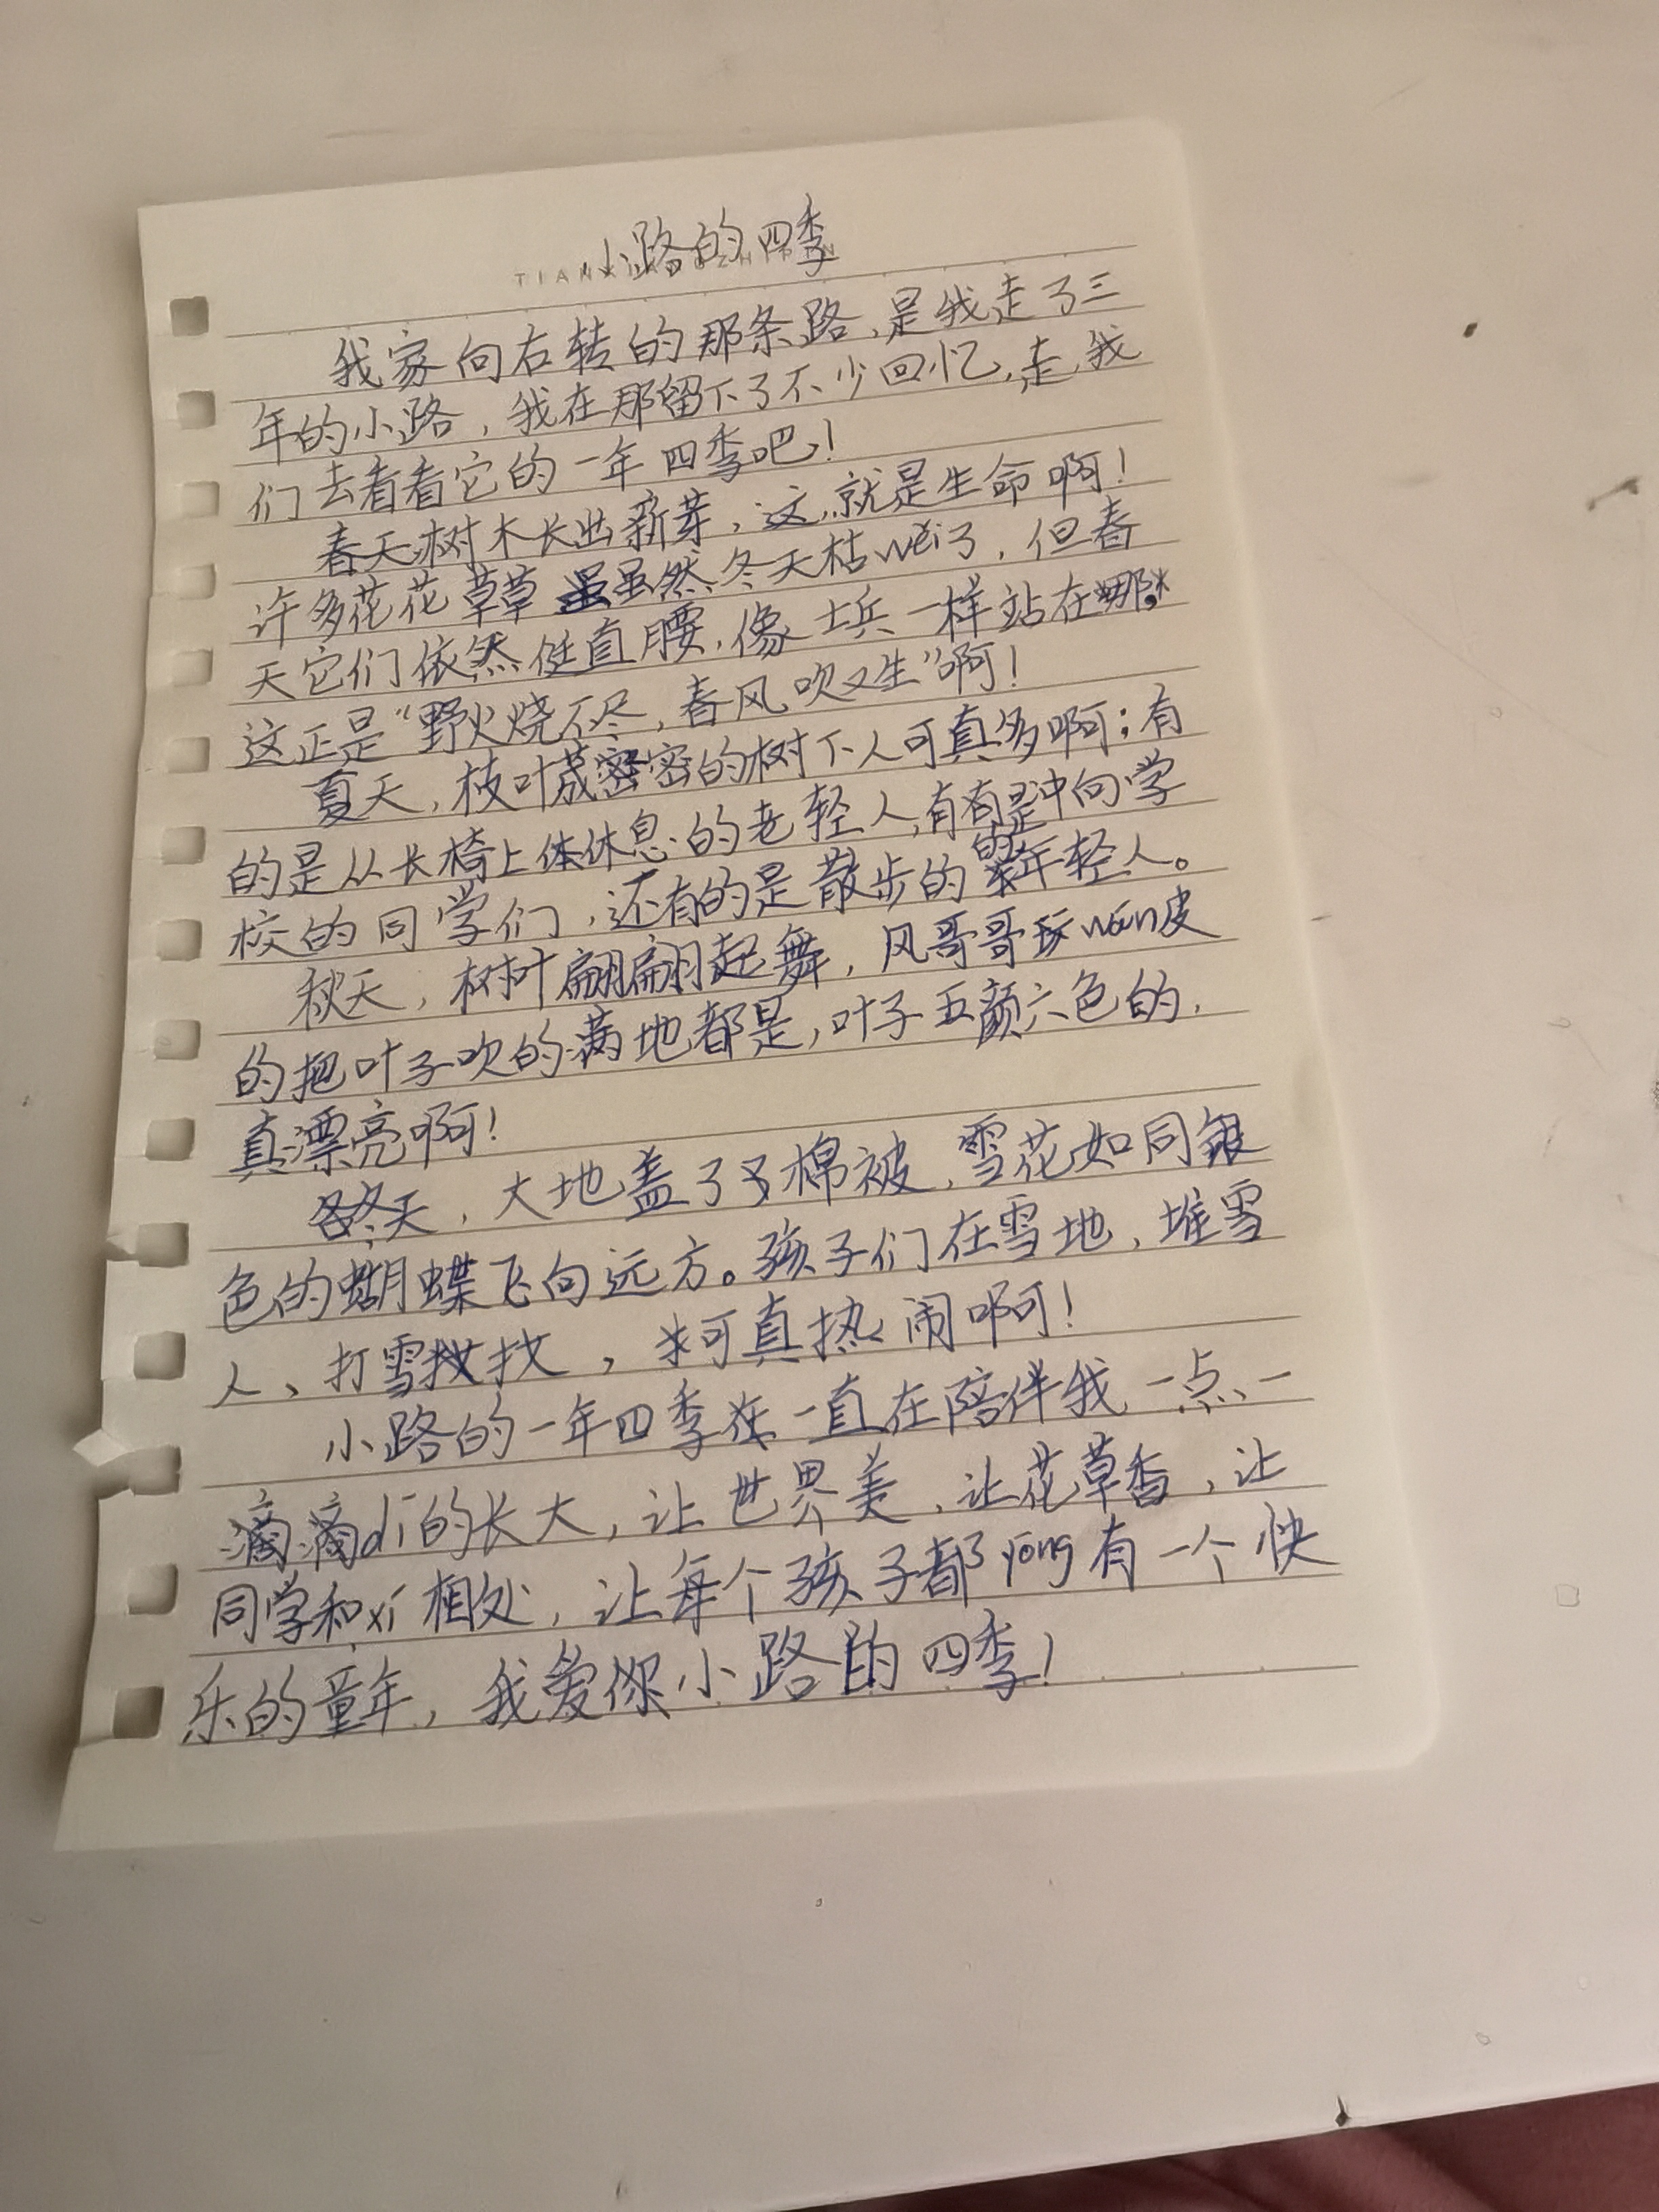 小路的四季
我家向右转的那条路,是我走了三
年的小路,我在那留下了不少回忆,走,我
们去看看它的一年四季吧!
春天树木长出新芽,这就是生命啊!
许多花花草草虽然冬天枯wěi了,但春
天它们依然挺直腰,像士兵一样站在那,
这正是“野火烧不尽,春风吹又生”啊!
夏天,枝叶茂密的树下人可真多啊;有
的是从长椅上休息的老轻人,有的是冲向学
校的同学们,还有的是散步的年轻人。
秋天,树叶翩翩起舞,风哥哥玩wán皮
的把叶子吹的满地都是,叶子五颜六色的,
真漂亮啊!
冬天,大地盖了棉被,雪花如同银
色的蝴蝶飞向远方。孩子们在雪地,堆雪
人、打雪,可真热闹啊!
小路的一年四季一直在陪伴我一点、一
滴滴dī的长大,让世界美,让花草香,让
同学和xī相处,让每个孩子都yōng有一个快
乐的童年,我爱你小路的四季!